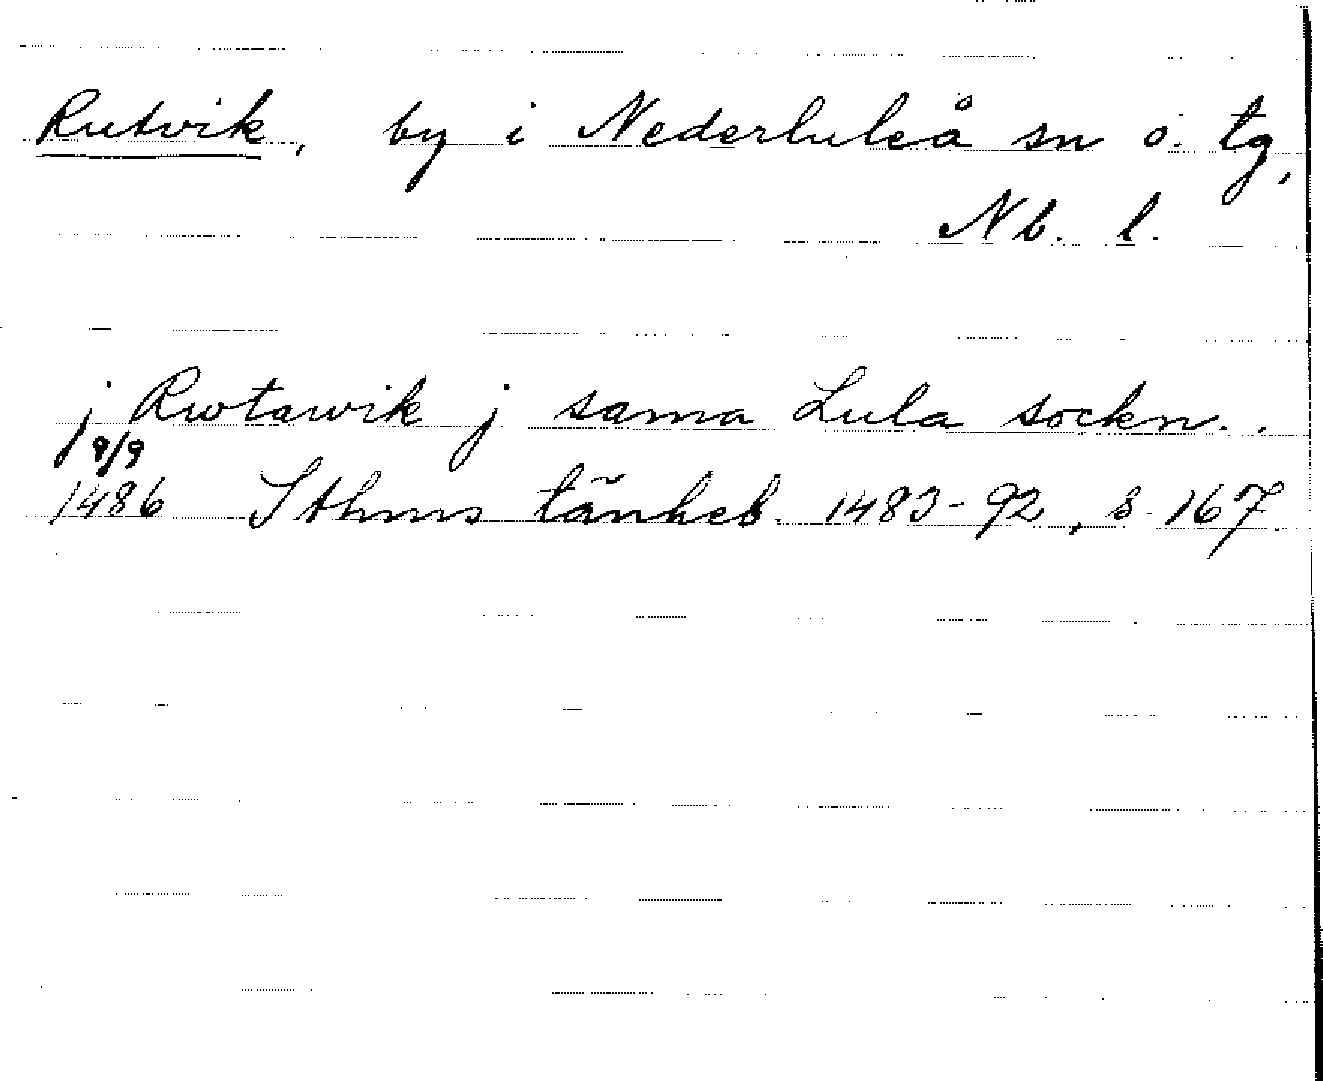 Rutvik, by i Nederluleå sn o. tg,
Nb. l.
j Rwtawik j sama Lula sockn..
9/9
1486 Sthms tänkeb. 1483-92, s. 167.